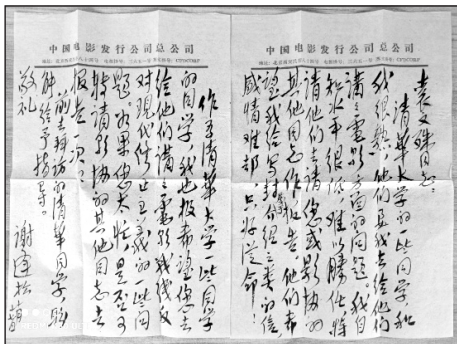 中国电影发行公司总公司
袁文殊同志：
清华大学的一些同学，和
我很熟，他们要我去给他们
讲讲电影方面的问题，我自
知水平很低，难以胜任，将
请他们去请您或影协的
其他同志作报告。他们希
望我给写封介绍之类的信，
感情难却，只好从命！
中国电影发行公司总公司
作为清华大学一些同学
的同学，我也很希望您去
给他们讲讲电影战线反
对现代修正主义的一些问
题，如果您太忙，是否可
转请影协的其他同志去
报告一次？
前去拜访的清华同学，盼
能给予指导。
敬礼
谢逢松